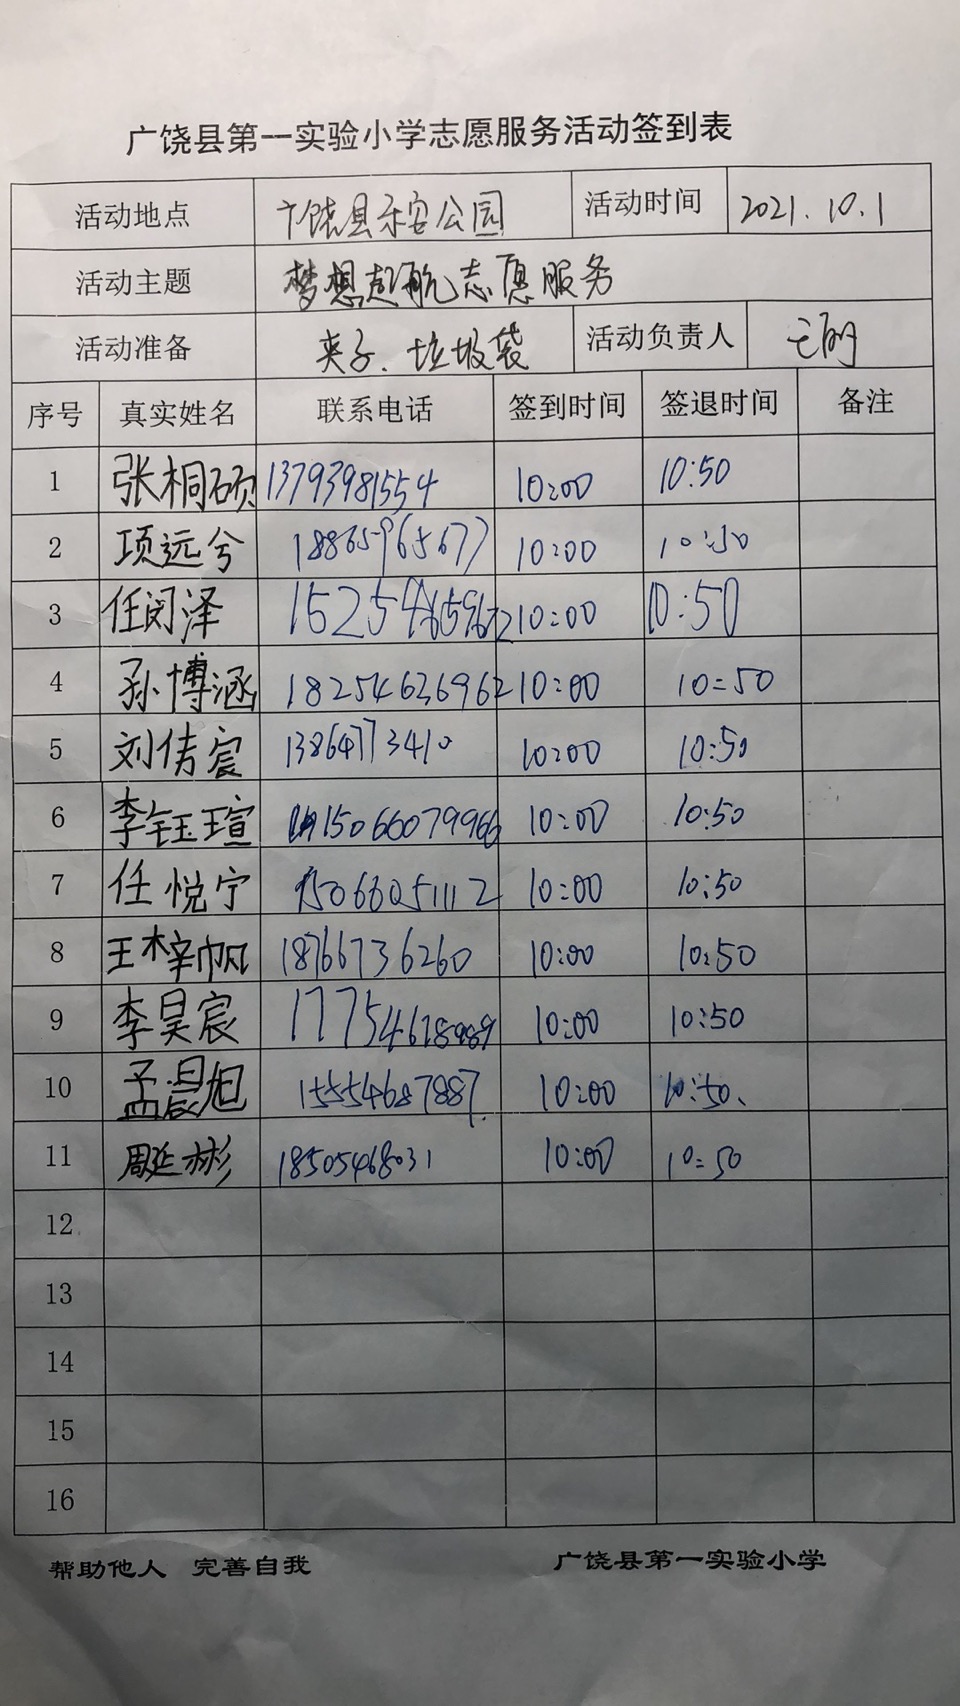 广饶县第一实验小学志愿服务活动签到表
活动地点 广饶县乐安公园 活动时间 2021.10.1
活动主题 梦想起航志愿服务
活动准备 夹子、垃圾袋 活动负责人
序号 真实姓名 联系电话 签到时间 签退时间 备注
1 张桐硕 13793981554 10:00 10:50
2 项远兮 18865965677 10:00 10:50
3 任闵泽 10:00 10:50
4 孙博涵 18254636962 10:00 10:50
5 刘倩宸 13864773410 10:00 10:50
6 李钰瑄 15066079966 10:00 10:50
7 任悦宁 15066051112 10:00 10:50
8 王梓帆 18766736260 10:00 10:50
9 李昊宸 10:00 10:50
10 孟晨旭 15554687887 10:00 10:50
11 周延彬 18505468031 10:00 10:50
12
13
14
15
16
帮助他人 完善自我 广饶县第一实验小学